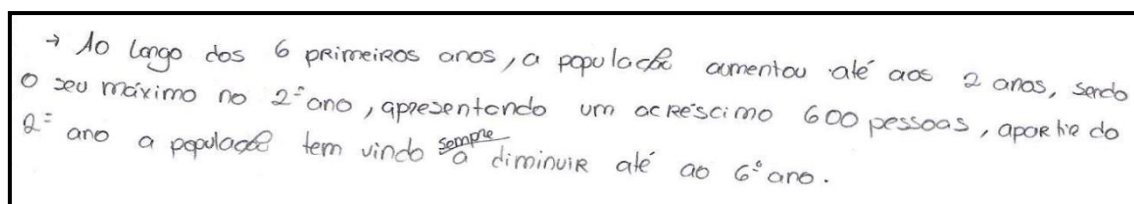 → Ao longo dos 6 primeiros anos, a população aumentou até aos 2 anos, sendo
o seu máximo no 2º ano, apresentando um acréscimo 600 pessoas, apartir do
2º ano a população tem vindo sempre a diminuir até ao 6º ano.